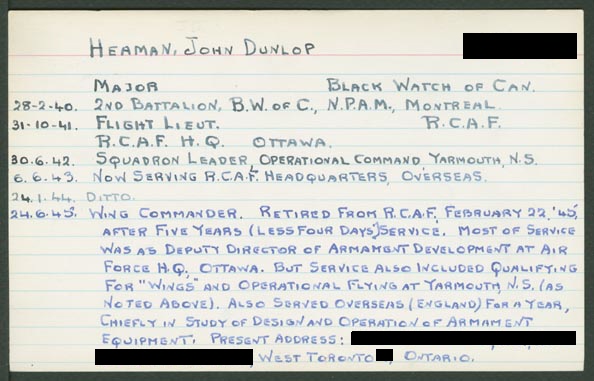 HERMAN, JOHN DUNLOP
MAJOR BLACK WATCH OF CAN.
28-2-40. 2ND BATTALION, B.W. OF C., N.P.A.M., MONTREAL.
31-10-41. FLIGHT LIEUT. R.C.A.F.
R.C.A.F. H.Q. OTTAWA.
30.6.42. SQUADRON LEADER, OPERATIONAL COMMAND, YARMOUTH, N.S.
6.6.43. NOW SERVING R.C.A.F. HEADQUARTERS, OVERSEAS.
24.1.44. DITTO.
24.6.45. WING COMMANDER. RETIRED FROM R.C.A.F, FEBRUARY 22, '45,
AFTER FIVE YEARS (LESS FOUR DAYS) SERVICE. MOST OF SERVICE
WAS AS DEPUTY DIRECTOR OF ARMAMENT DEVELOPMENT AT AIR
FORCE H.Q. OTTAWA. BUT SERVICE ALSO INCLUDED QUALIFYING
FOR "WINGS" AND OPERATIONAL FLYING AT YARMOUTH, N.S. (AS
NOTED ABOVE). ALSO SERVED OVERSEAS (ENGLAND) FOR A YEAR,
CHIEFLY IN STUDY OF DESIGN AND OPERATION OF ARMAMENT
EQUIPMENT. PRESENT ADDRESS:
, WEST TORONTO , ONTARIO.